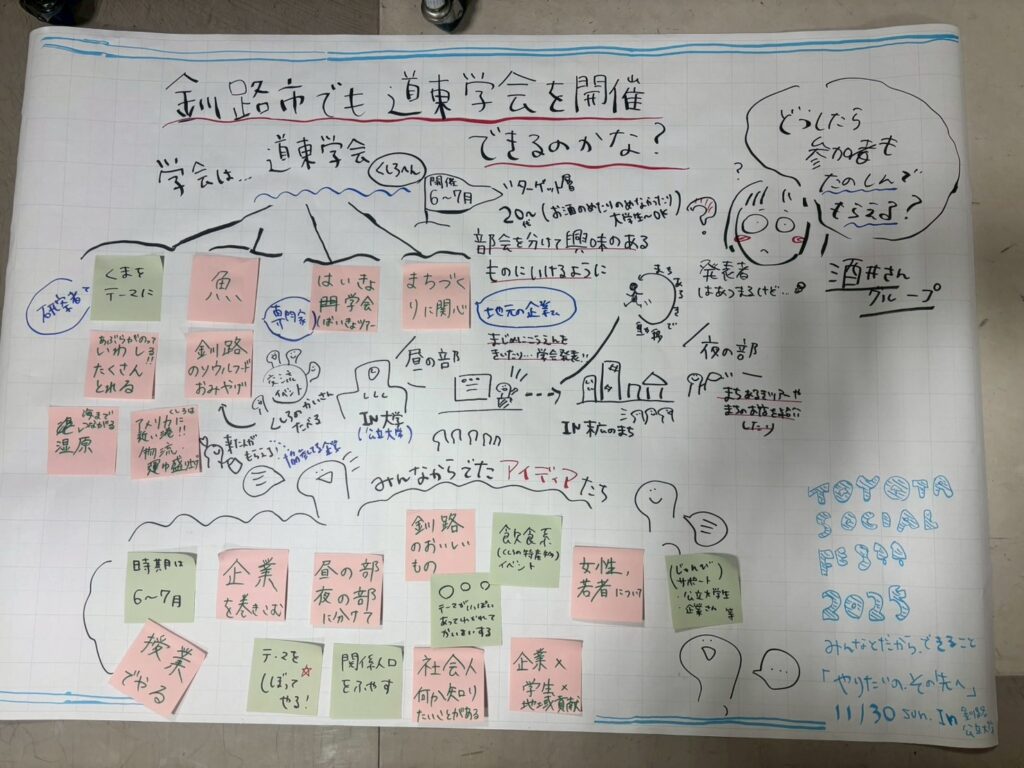 釧路市でも道東学会を開催
できるのかな？
学会は… 道東学会
くしろへん
開催
6〜7月
ターゲット層
20〜
代
(お酒のめたりのめなかったり
大学生〜OK
部会を分けて興味のある
ものにいけるように
どうしたら
参加者も
たのしんで
もらえる？
?
酒井さん
グループ
発表者
はあつまるけど…
研究者で
くまを
テーマに
魚
専門家
はいきょ
門学会
(はいきょツアー
まちづく
りに関心
地元の企業
まち
あるき
で
移
あぶらがのって
いわし
たくさん!!
とれる
釧路
のソウルフード
おみやげ
交流
イベント
くしろのおいさん
たべる
昼の部
まじめにこうえんを
きいたり…学会発表!!
夜の部
まちあるきツアーや
まちのお店を紹介
したり
IN 大学
(公立大学)
IN 末広のまち
海まで
つながる
湿原
くしろは
アメリカに
近い港!!
物流
もらえる!
みんなからでたアイディアたち
時期は
6〜7月
企業
を巻きこむ
昼の部
夜の部
に分けて
釧路
のおいしい
もの
飲食系
(くしろの特産物)
イベント
〇〇〇
テーマがいっぱい
あって
女性，
若者について
(じゅんび)
サポート
・公立大学生
・企業さん 等
授業
でやる
テーマを
しぼって
やる！
関係人口
をふやす
社会人
何か知り
たいことがある
企業×
学生×
地域貢献
TOYOTA
SOCIAL
FES!!
2025
みんなとだから、できること
「やりたいの、その先へ」
11/30 sun. In 釧路
公立大学